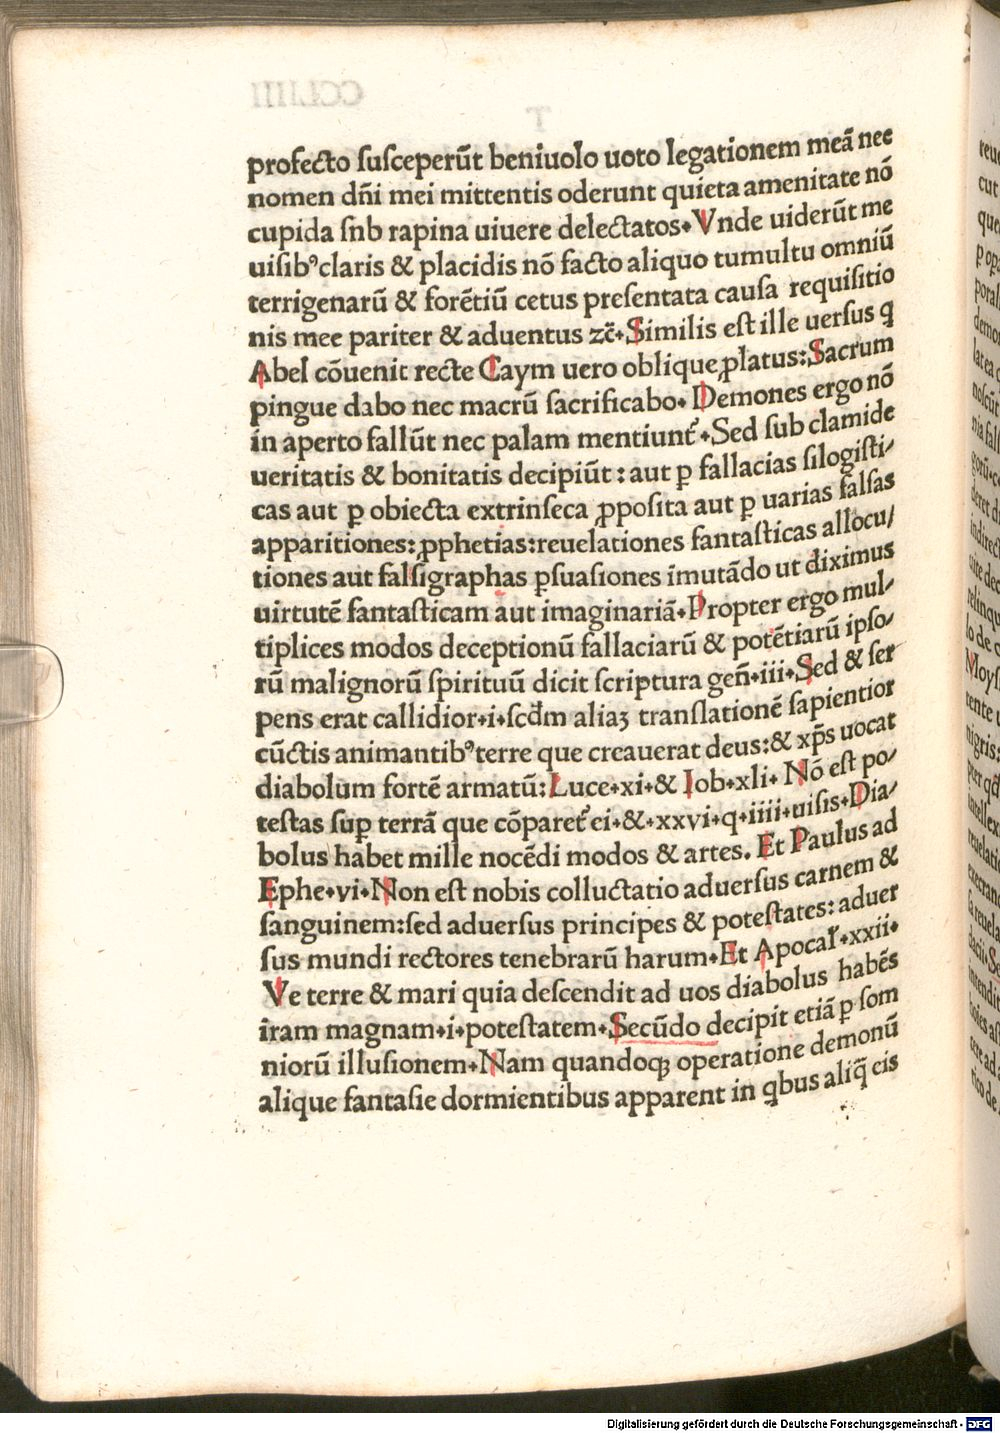 profecto ſuſceperūt beniuolo uoto legationem meā nec
nomen dn̄i mei mittentis oderunt quieta amenitate nō
cupida ſnb rapina uiuere delectatos. Vnde uiderūt me
uiſibꝰ claris & placidis nō facto aliquo tumultu omniū
terrigenarū & forētiū cetus preſentata cauſa requiſitio
nis mee pariter & aduentus zc̄. Similis eſt ille uerſus q̄
Abel cōuenit recte Caym uero oblique ꝓlatus: Sacrum
pingue dabo nec macrū ſacrificabo. Demones ergo nō
in aperto fallūt nec palam mentiunt᷑. Sed ſub clamide
ueritatis & bonitatis decipiūt: aut ꝑ fallacias ſilogiſti⸗
cas aut ꝑ obiecta extrinſeca ꝓpoſita aut ꝑ uarias falſas
apparitiones: ꝓphetias: reuelationes fantaſticas allocu/
tiones aut falſigraphas ꝑſuaſiones imutādo ut diximus
uirtutē fantaſticam aut imaginariā. Propter ergo mul⸗
tiplices modos deceptionū fallaciarū & potētiarū ipſo⸗
rū malignorū ſpirituū dicit ſcriptura gen̄.iii. Sed & ſer
pens erat callidior.i. ſcd̄m aliaꝫ tranſlationē ſapientior
cūctis animantibꝰ terre que creauerat deus: & xp̄s uocat
diabolum fortē armatū: Luce.xi. & Iob.xli. Nō eſt po⸗
teſtas ſuꝑ terrā que cōparet᷑ ei. &.xxvi.q.iiii.uiſis. Dia⸗
bolus habet mille nocēdi modos & artes. Et Paulus ad
Ephe.vi. Non eſt nobis colluctatio aduerſus carnem &
ſanguinem: ſed aduerſus principes & poteſtates: aduer
ſus mundi rectores tenebrarū harum. Et Apocal̄.xxii.
Ve terre & mari quia deſcendit ad uos diabolus habēs
iram magnam.i.poteſtatem. Secūdo decipit etiā ꝑ ſom
niorū illuſionem. Nam quandoqꝫ operatione demonū
alique fantaſie dormientibus apparent in qͥbus aliq̄ eis
Digitalisierung gefördert durch die Deutsche Forschungsgemeinschaft - DFG